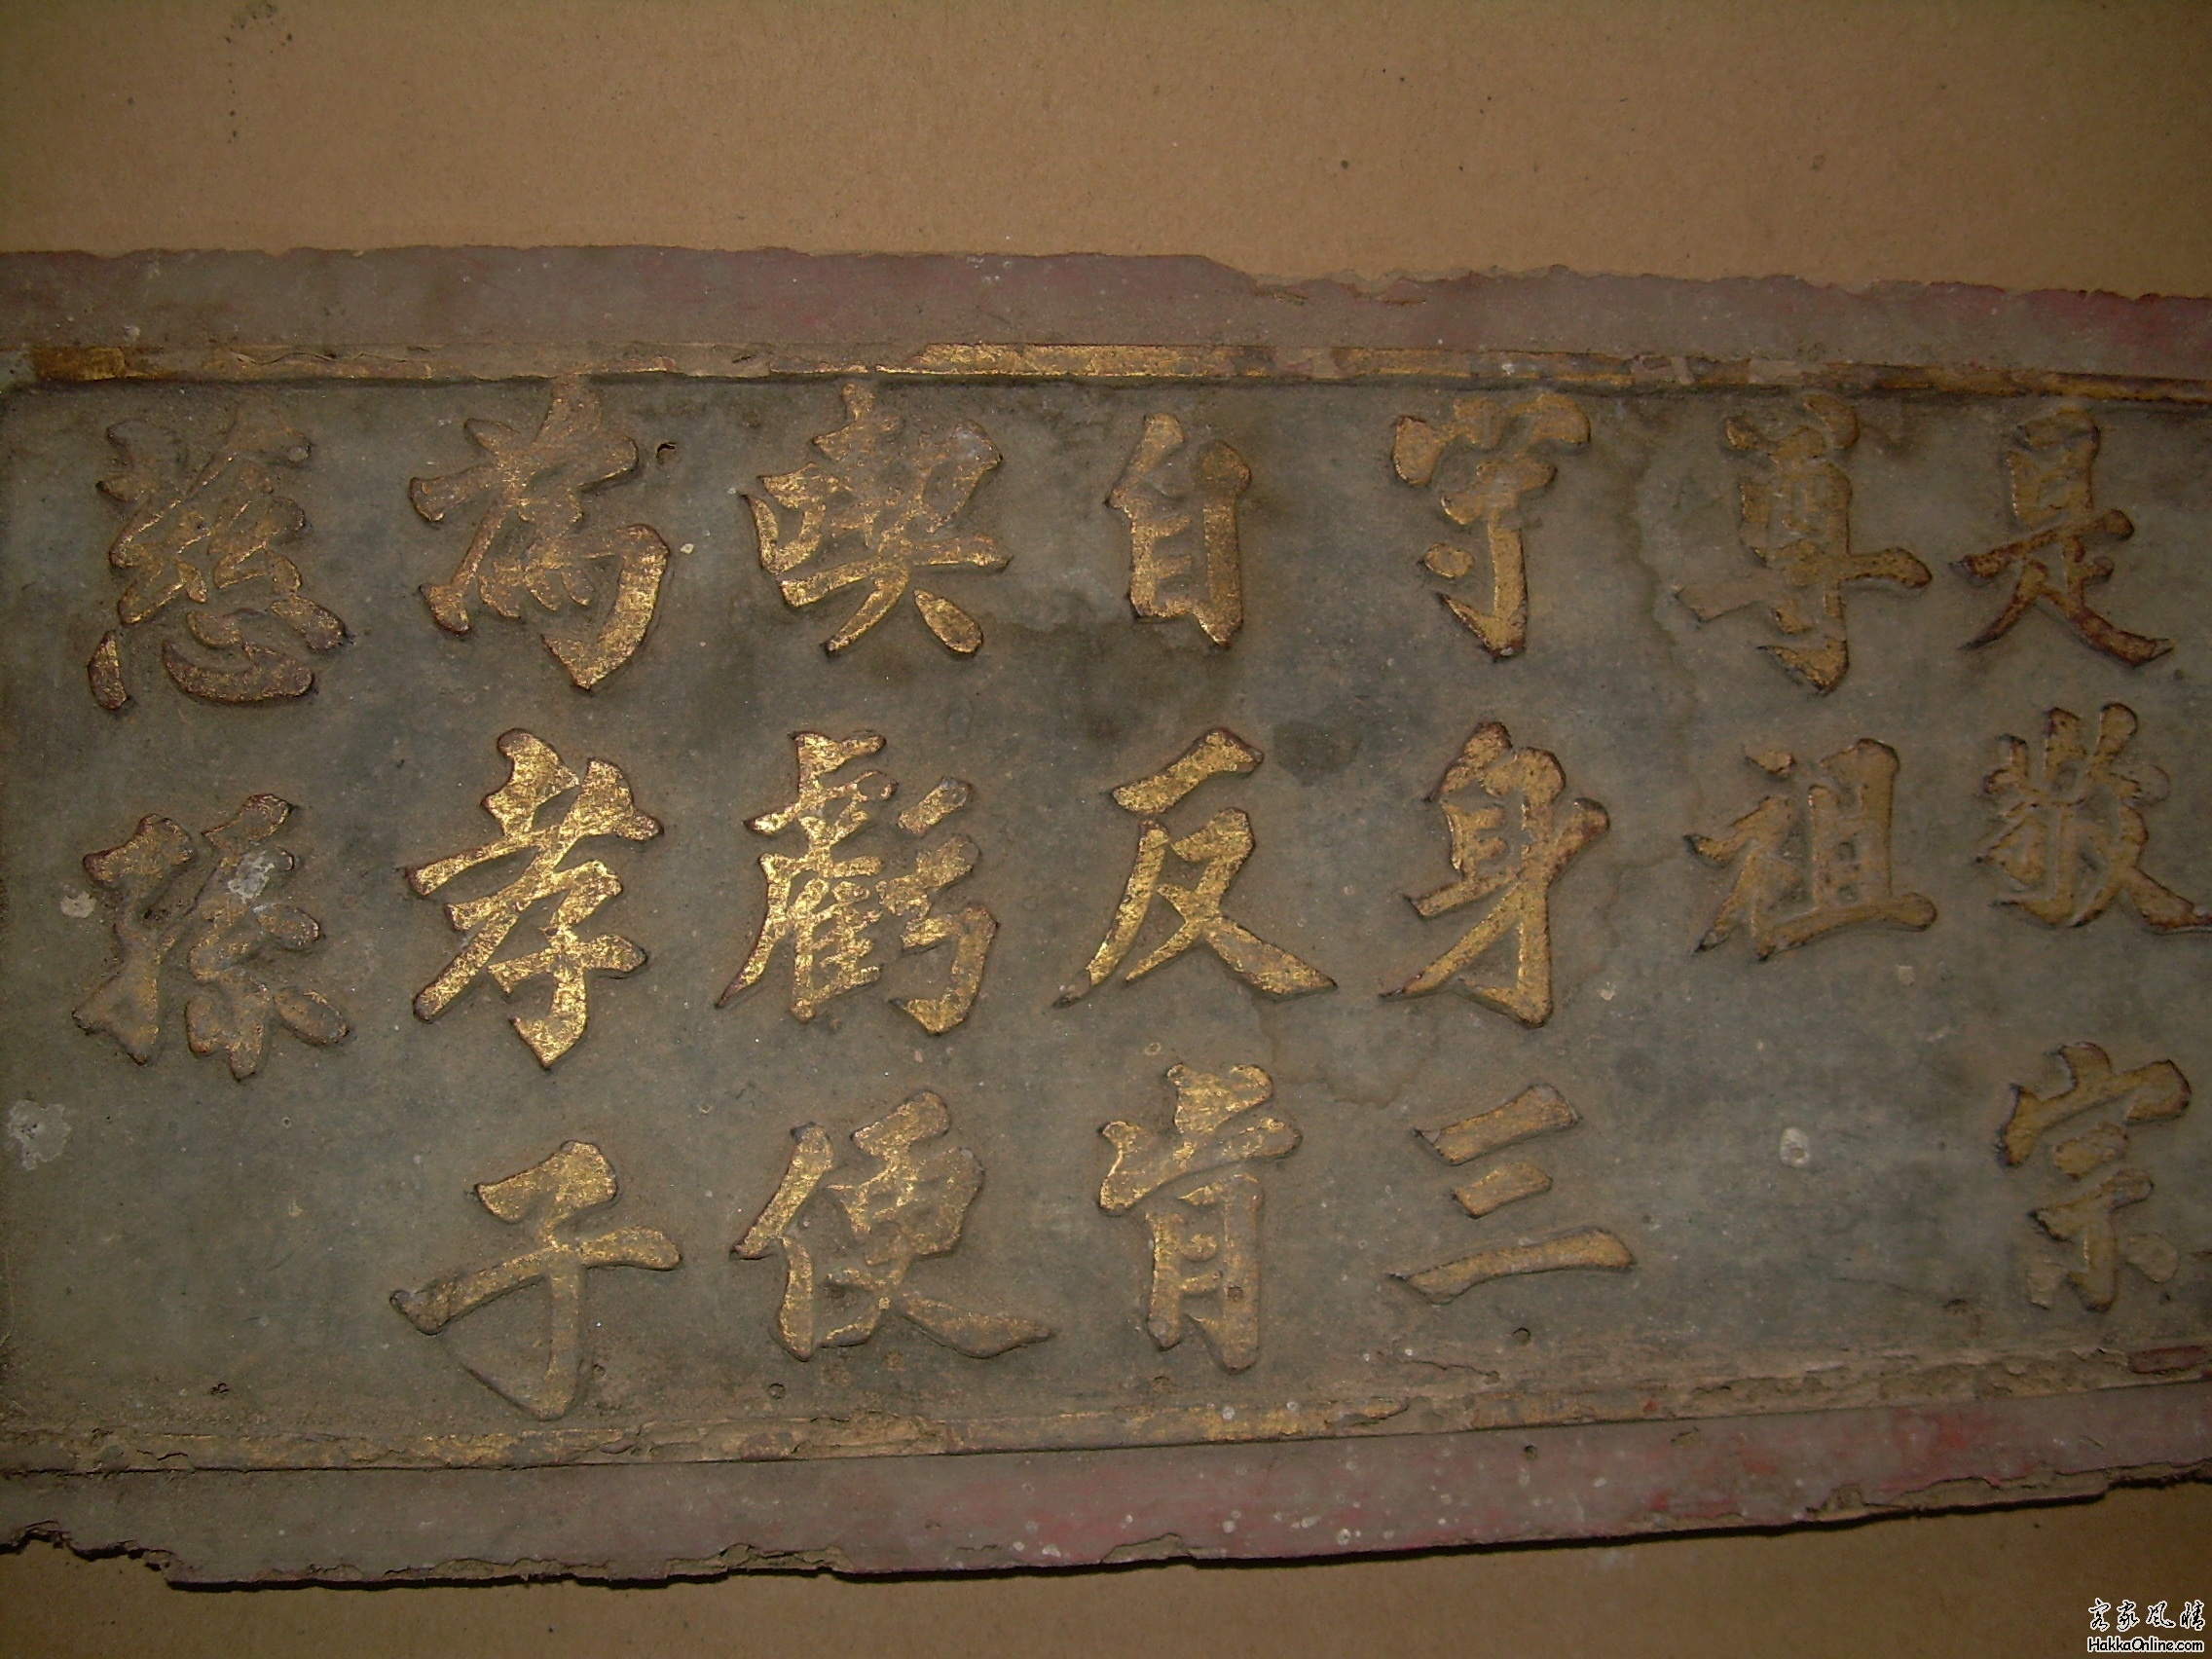 是敬宗
尊祖
守身三
自反肯
喫虧便
為孝子
慈孫
客家風情
HakkaOnline.com